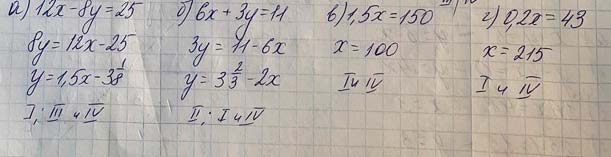 а) 12x - 8y = 25
8y = 12x - 25
y = 1,5x - 3 1/8
I; III и IV
б) 6x + 3y = 11
3y = 11 - 6x
y = 3 2/3 - 2x
II; I и IV
в) 1,5x = 150
x = 100
I и IV
г) 0,2x = 43
x = 215
I и IV